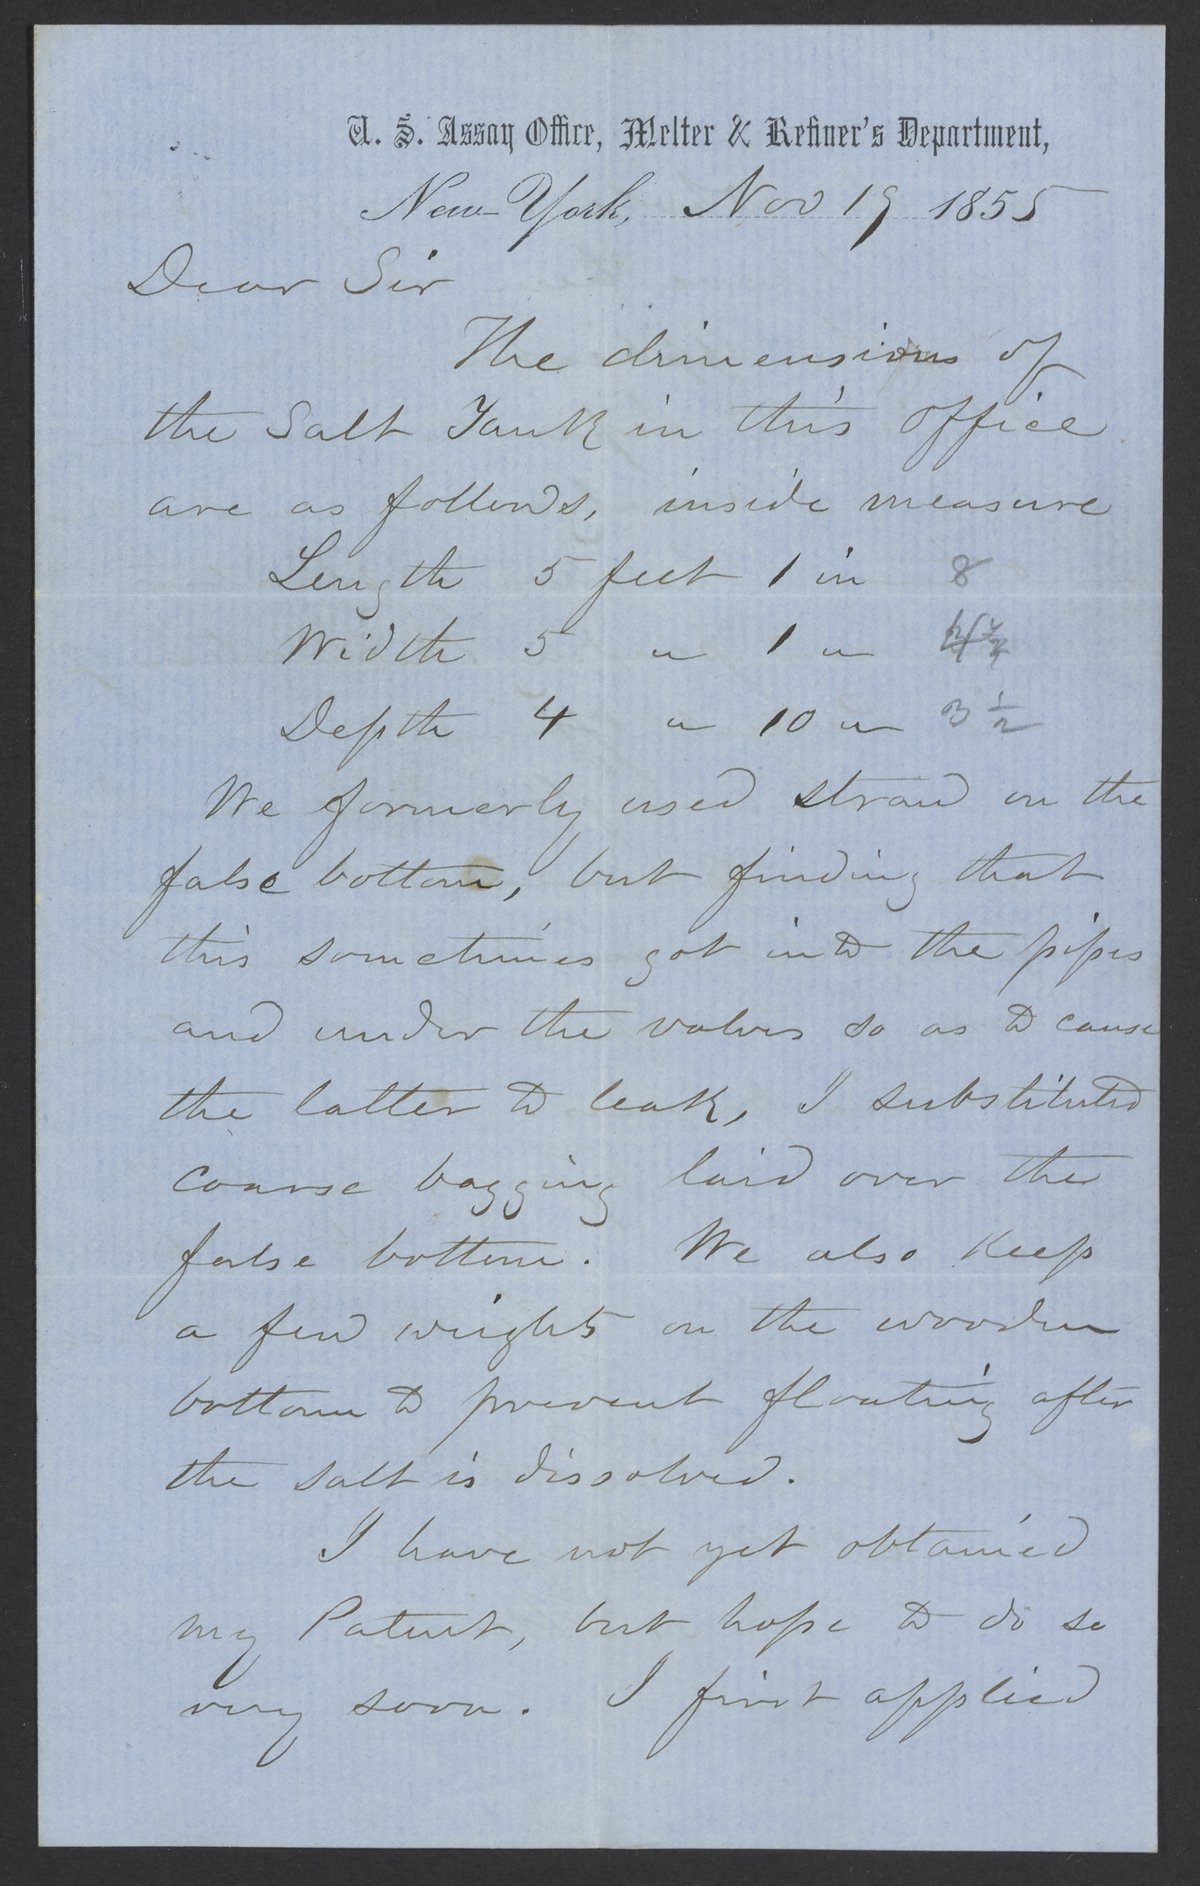 U. S. Assay Office, Melter & Refiner's Department,
New-York, Nov 19 1855
Dear Sir
The dimensions of
the Salt Tank in this office
are as follows, inside measure
Length 5 feet 1 in 8
Width 5 " 1 "
Depth 4 " 10 " 3 1/2
We formerly used straw on the
false bottom, but finding that
this sometimes got into the pipes
and under the valves so as to cause
the latter to leak, I substituted
coarse bagging laid over the
false bottom. We also keep
a few weights on the wooden
bottom to prevent floating after
the salt is dissolved.
I have not yet obtained
my Patent, but hope to do so
very soon. I first applied